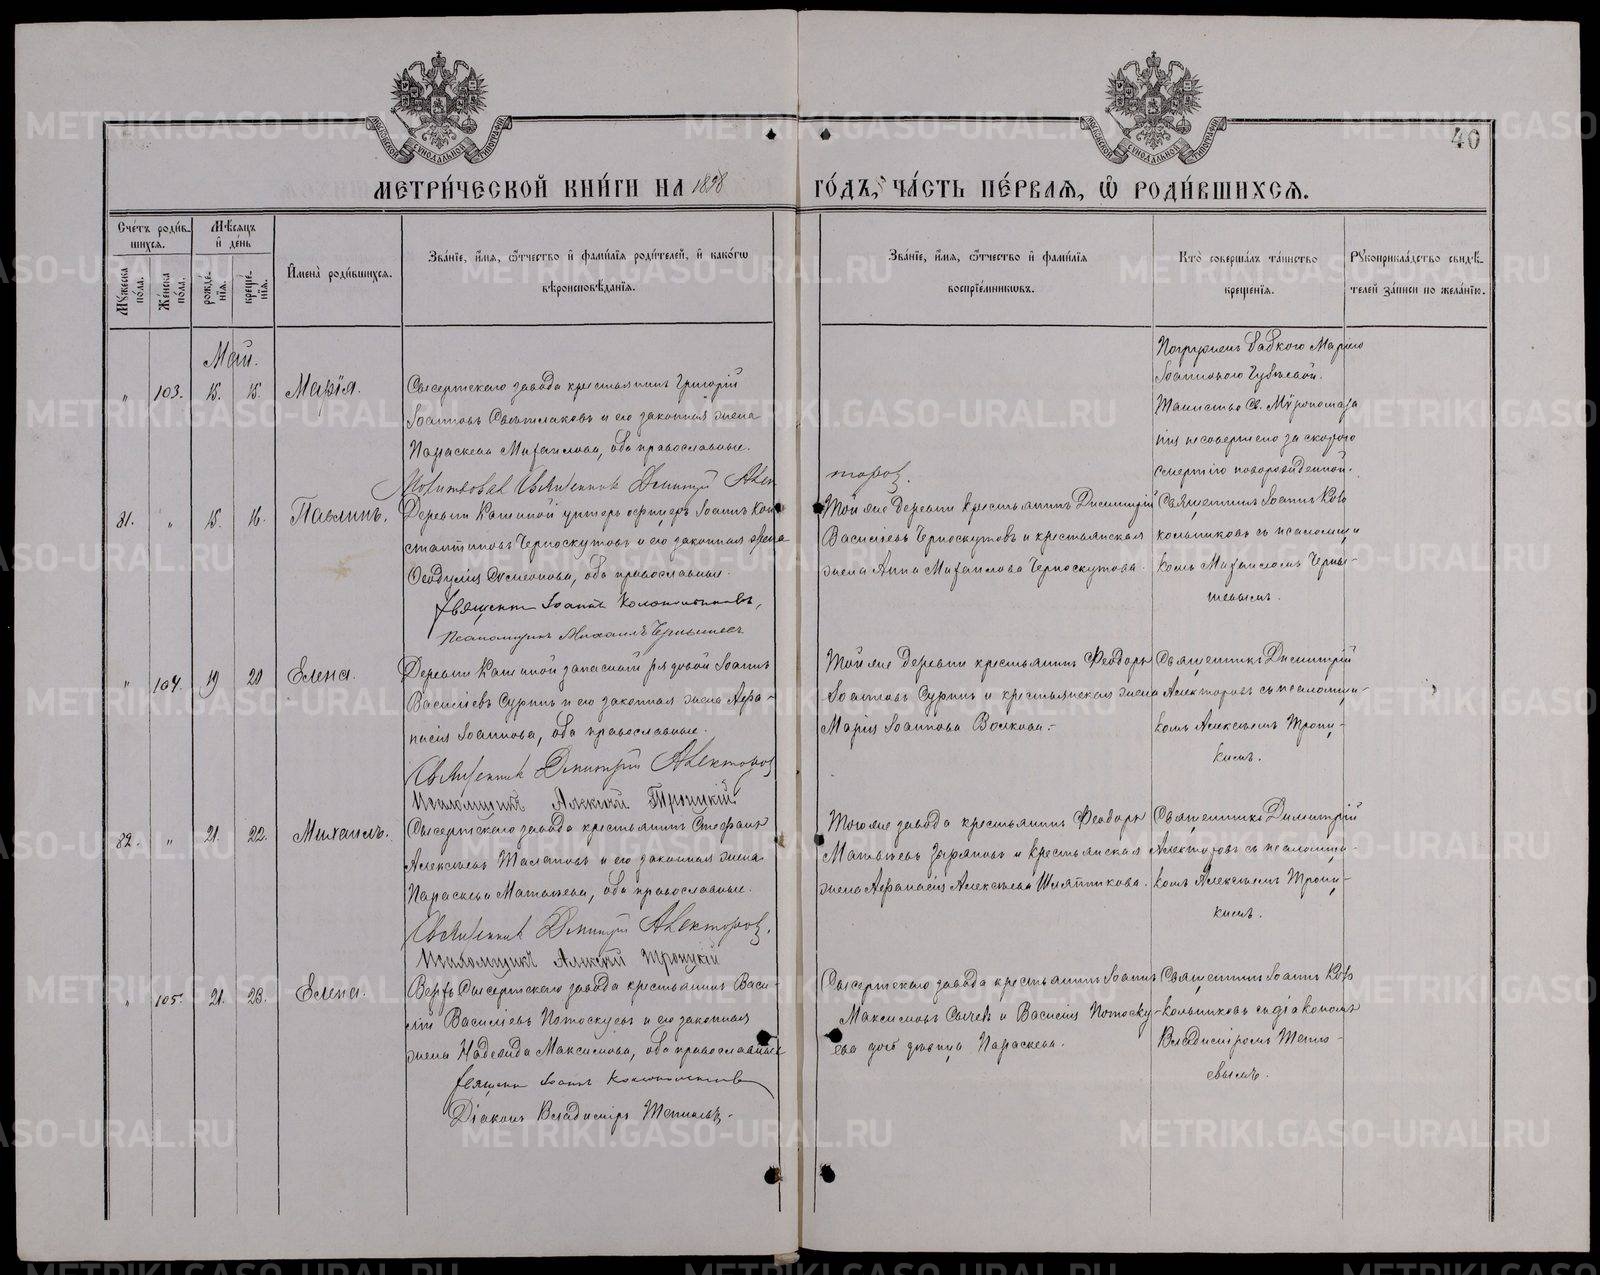 40
МЕТРИ́ЧЕСКОЙ КНИ́ГИ НА 1898 ГО́ДЪ, ЧА́СТЬ ПЕ́РВАЯ, Ѡ РОДИ́ВШИХСЯ.
Сче́тъ роди́в-
шихся.
Мꙋжеска по́ла.
Же́нска по́ла.
Мѣ́сяцъ и҆ де́нь
рожде́-
нїѧ.
креще́-
нїѧ.
И҆мена̀ роди́вшихся.
Зва́нїе, и҆́мѧ, ѻ҆́тчество и҆ фами́лїѧ роди́телей, и҆ како́гѡ
вѣроисповѣ́данїѧ.
Зва́нїе, и҆́мѧ, ѻ҆́тчество и҆ фами́лїѧ
воспрїе́мникѡвъ.
Кто̀ соверша́лъ та́инство
креще́нїѧ.
Рꙋкоприкла́дство свидѣ́-
телей за́писи по жела́нїю.
Май.
" 103. 15. 15. Марія.
Сысертскаго завода крестьянинъ Григорій
Іоанновъ Свѣтлаковъ и его законная жена
Параскева Михаилова, оба православные.
Молитвовал Священник Димитрий Алек
торов.
Погружена бабкою Маріею
Іоанновою Губиной.
Таинство Св. Мѵропомаза
нія несовершено за скорою
смертію новорожденной.
81. " 15. 16. Павлинъ.
Деревни Кашиной унтеръ офицеръ Іоаннъ Кон
стантиновъ Черноскутовъ и его законная жена
Феодулія Симеонова, оба православные.
Священ. Іоаннъ Колокольниковъ,
Псаломщикъ Михаилъ Чернышевъ
Той же деревни крестьянинъ Димитрій
Василіевъ Черноскутовъ и крестьянская
жена Анна Михаилова Черноскутова.
Священникъ Іоаннъ Коло
кольниковъ съ псаломщи
комъ Михаиломъ Черны-
шевымъ.
" 104. 19 20 Елена.
Деревни Кашиной запасной рядовой Іоаннъ
Василіевъ Суринъ и его законная жена Афа-
насія Іоаннова, оба православные.
Священник Димитрий Алекторов
Псаломщикъ Алексѣй Троицкій
Той же деревни крестьянинъ Феодоръ
Іоанновъ Суринъ и крестьянская жена
Марія Іоаннова Волкова.
Священникъ Димитрій
Алекторовъ съ псаломщи-
комъ Алексѣемъ Трои-
цкимъ.
82. " 21. 22. Михаилъ.
Сысертскаго завода крестьянинъ Стефанъ
Алексѣевъ Талановъ и его законная жена
Параскева Матѳѣева, оба православные.
Священник Димитрий Алекторов.
Псаломщикъ Алексѣй Троицкій
Того же завода крестьянинъ Феодоръ
Матѳѣевъ Зыряновъ и крестьянская
жена Афанасія Алексѣева Шляпникова.
Священникъ Димитрій
Алекторовъ съ псаломщи-
комъ Алексѣемъ Трои-
цкимъ.
" 105. 21. 23. Елена.
Верхъ Сысертскаго завода крестьянинъ Васи-
лій Василіевъ Потоскуевъ и его законная
жена Надежда Максимова, оба православные
Священ. Іоаннъ Колокольниковъ
Діаконъ Владиміръ Тепловъ.
Сысертскаго завода крестьянинъ Іоаннъ
Максимовъ Сычевъ и Василія Потоску-
ева дочь дѣвица Параскева.
Священникъ Іоаннъ Коло
кольниковъ съ діакономъ
Владиміромъ Тепло-
вымъ.
METRIKI.GASO-URAL.RU